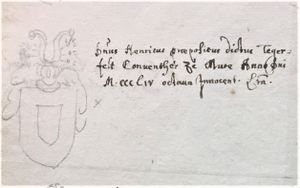 Henricus præpositus dictus Teger-
felt Conventher Ze Mure Anno Dni
M. CCC LIV octava Innocent.